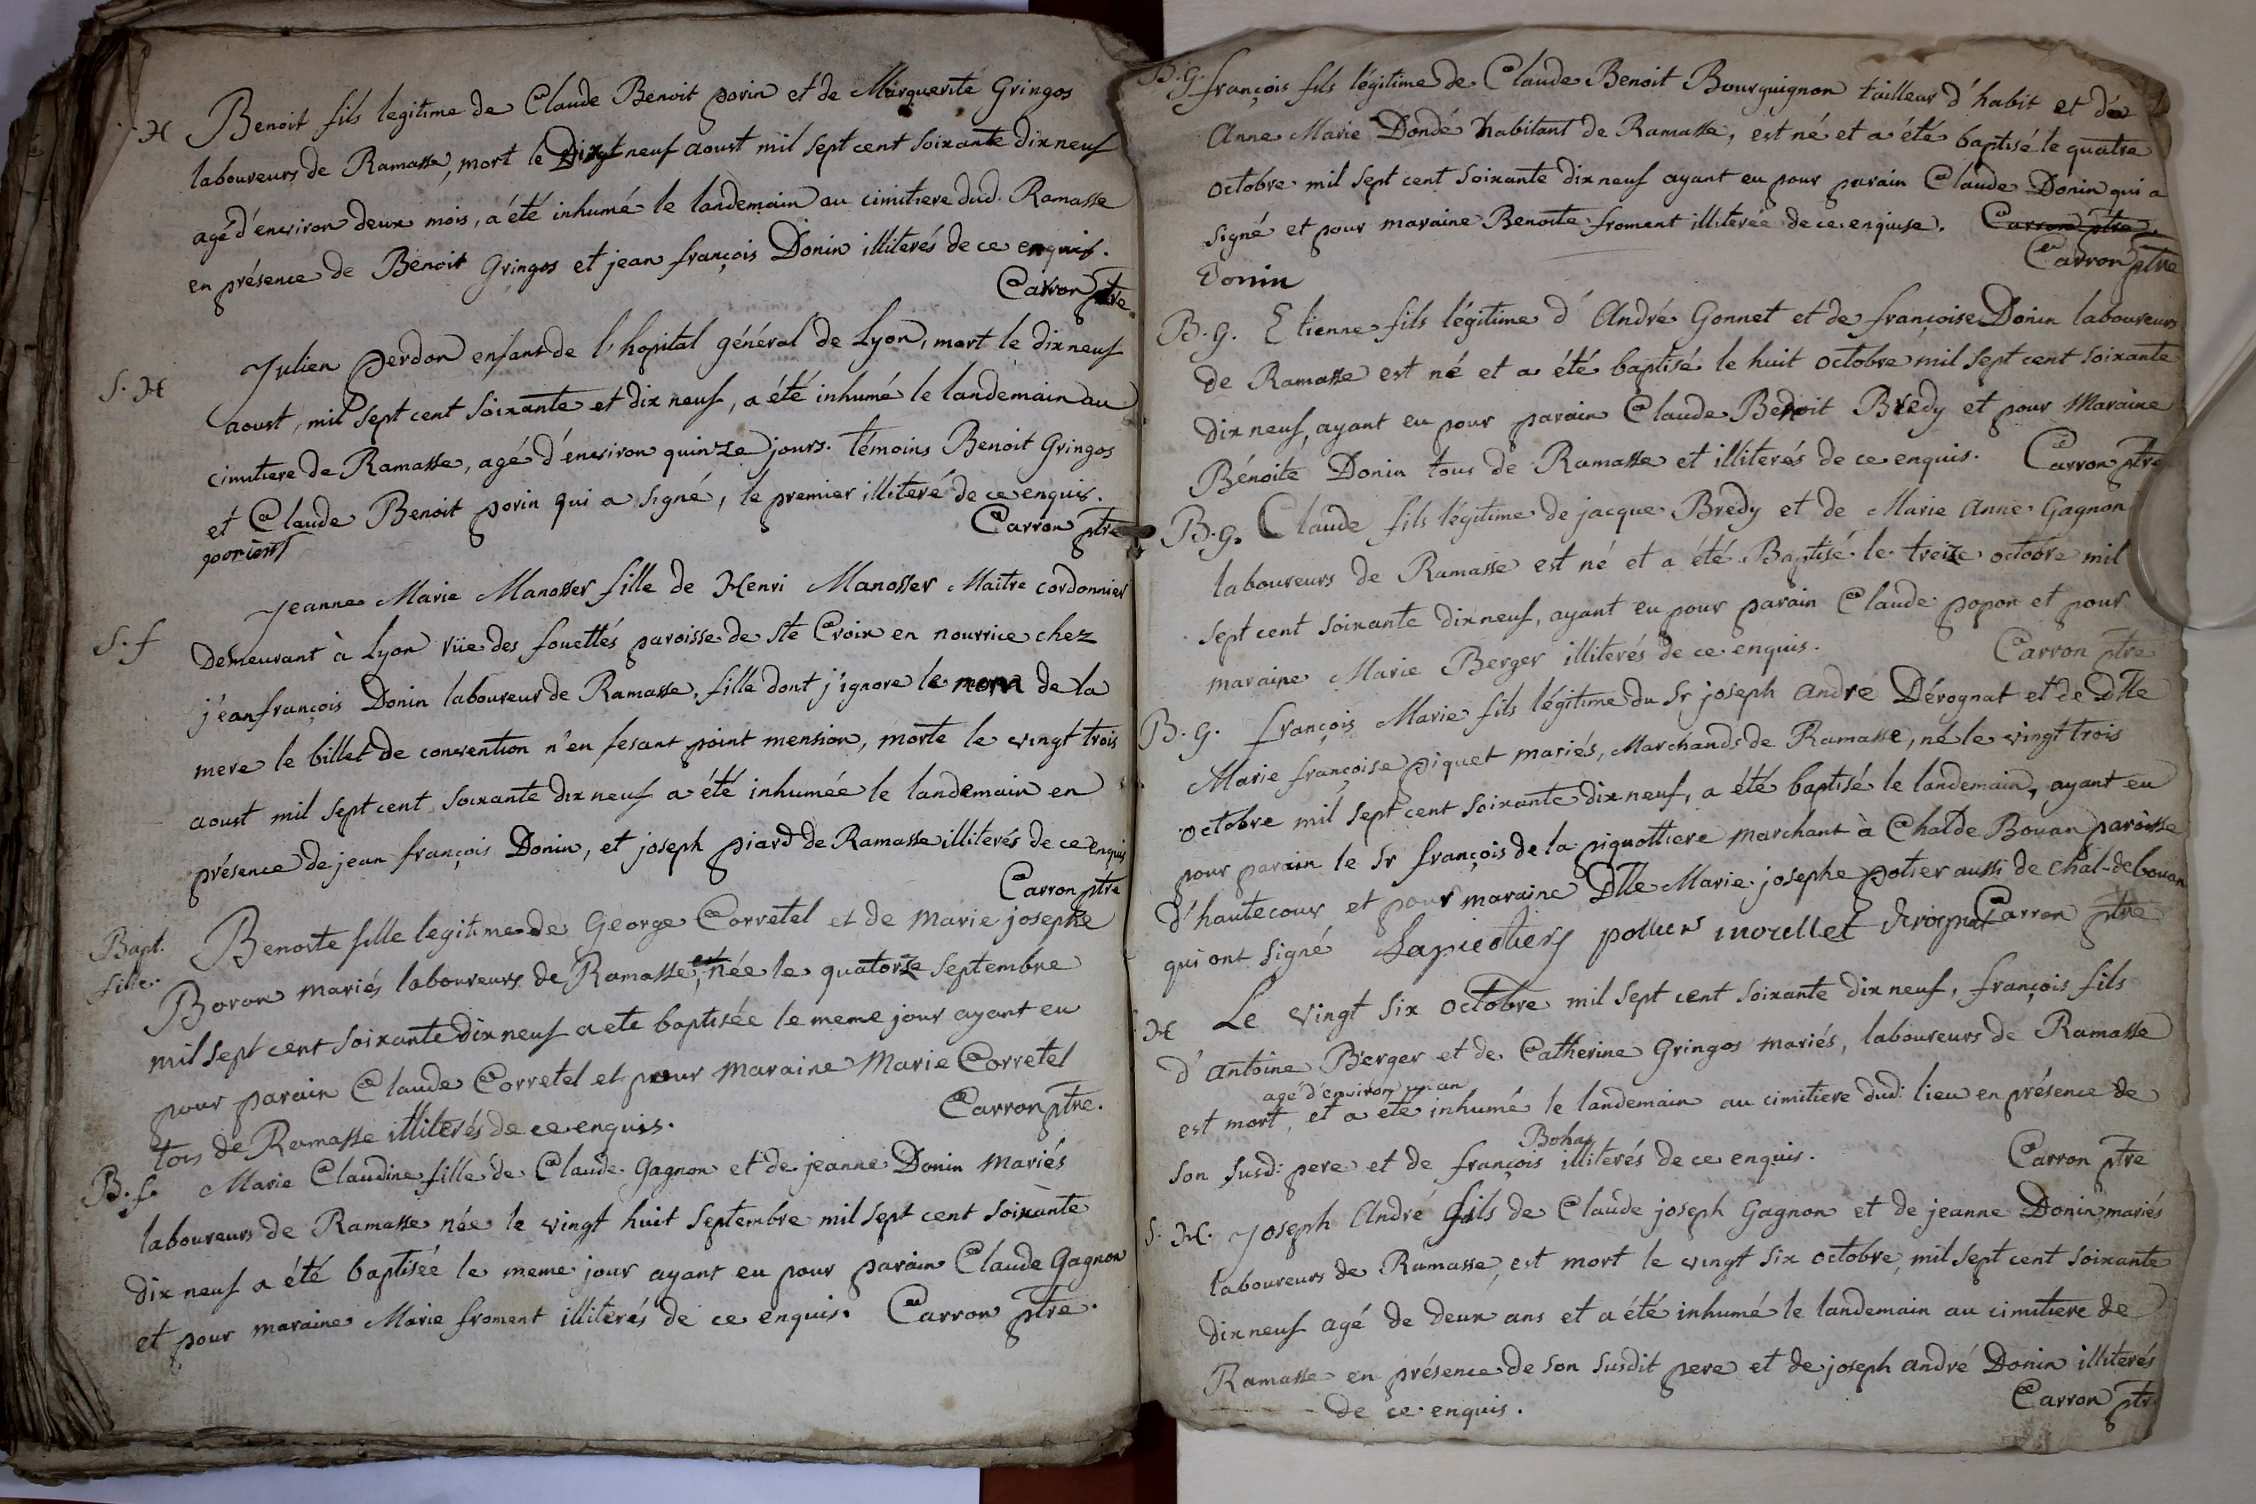 H Benoit fils legitime de Claude Benoit porin et de Marguerite Gringos
laboureurs de Ramasse, mort le Dix neuf aoust mil sept cent soixante dix neuf
agé d'environ deux mois, a été inhumé le landemain au cimitiere dud. Ramasse
en présence de Benoit Gringos et jean françois Donin illiterés de ce enquis.
Carron ptre
S. H Julien perdon enfant de l'hopital général de Lyon, mort le dix neuf
aoust, mil sept cent soixante et dix neuf, a été inhumé le landemain au
cimitiere de Ramasse, agé d'environ quinze jours. témoins Benoit Gringos
et Claude Benoit porin qui a signé, le premier illiteré de ce enquis.
Carron ptre
S. f Jeanne Marie Manosser fille de Henri Manosser Maitre cordonnier
Demeurant à Lyon rüe des fouettés paroisse de Ste Croix en nourrice chez
jean françois Donin laboureur de Ramasse, fille dont j'ignore le nom de la
mere le billet de convention n'en fesant point mension, morte le vingt trois
aoust mil sept cent soixante dix neuf a été inhumée le landemain en
présence de jean françois Donin, et joseph piard de Ramasse illiterés de ce enquis
Carron ptre
Bapt. fille. Benoite fille legitime de George Corretel et de Marie josephe
Boron mariés laboureurs de Ramasse, est née le quatorze Septembre
mil sept cent soixante dix neuf a ete baptisée le meme jour ayant eu
pour parain Claude Corretel et pour Maraine Marie Corretel
tous de Ramasse illiterés de ce enquis. Carron ptre.
B. f. Marie Claudine fille de Claude Gagnon et de jeanne Donin Mariés
laboureurs de Ramasse née le vingt huit Septembre mil sept cent soixante
dix neuf a été baptisée le meme jour ayant eu pour parain Claude Gagnon
et pour maraine Marie froment illiterés de ce enquis. Carron ptre.
B. G. françois fils légitime de Claude Benoit Bourguignon tailleur d'habit et de
Anne Marie Dondé habitant de Ramasse, est né et a été baptisé le quatre
octobre mil sept cent soixante dix neuf ayant eu pour parain Claude Donin qui a
signé et pour maraine Benoite froment illiterée de ce enquise. Carron ptre
Donin Carron ptre
B. g. Etienne fils légitime d'André Gonnet et de françoise Donin laboureurs
de Ramasse est né et a été baptisé le huit octobre mil sept cent soixante
dix neuf, ayant eu pour parain Claude Benoit Bredy et pour Maraine
Bénoite Donin tous de Ramasse et illiterés de ce enquis. Carron ptre
B. g. Claude fils légitime de jacque Bredy et de Marie Anne Gagnon
laboureurs de Ramasse est né et a été Baptisé le treize octobre mil
sept cent soixante dix neuf, ayant eu pour parain Claude popon et pour
maraine Marie Berger illiterés de ce enquis. Carron ptre
B. g. françois Marie fils légitime du Sr joseph André Dérognat et de Dlle
Marie françoise piquet mariés, Marchands de Ramasse, né le vingt trois
octobre mil sept cent soixante dix neuf, a été baptisé le landemain, ayant eu
pour parain le Sr françois de la piquottiere marchant à Chal de Bouan paroisse
d'hautecour et pour maraine Dlle Marie josephe potier aussi de chal-de bouan
qui ont signé Carron ptre
H Le vingt six octobre mil sept cent soixante dix neuf, françois fils
d'antoine Berger et de Catherine Gringos mariés, laboureurs de Ramasse
agé d'environ un an
est mort, et a été inhumé le landemain au cimitiere dud: lieu en présence de
Bohas
son susd: pere et de françois illiterés de ce enquis. Carron ptre
S. H. Joseph André fils de Claude joseph Gagnon et de jeanne Donin mariés
laboureurs de Ramasse, est mort le vingt six octobre, mil sept cent soixante
dix neuf agé de deux ans et a été inhumé le landemain au cimitiere de
Ramasse en présence de son susdit pere et de joseph andré Donin illiterés
de ce enquis. Carron ptre